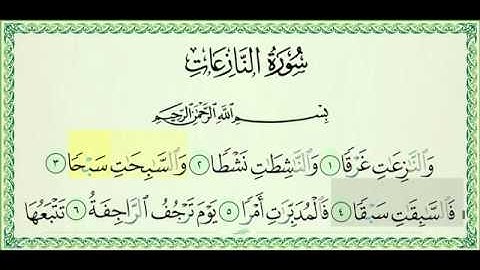 سُورَةُ النَّازِعَاتِ
بِسْمِ اللَّهِ الرَّحْمَٰنِ الرَّحِيمِ
وَالنَّٰزِعَٰتِ غَرْقًا ١ وَالنَّٰشِطَٰتِ نَشْطًا ٢ وَالسَّٰبِحَٰتِ سَبْحًا ٣
فَالسَّٰبِقَٰتِ سَبْقًا ٤ فَالْمُدَبِّرَٰتِ أَمْرًا ٥ يَوْمَ تَرْجُفُ الرَّاجِفَةُ ٦ تَتْبَعُهَا